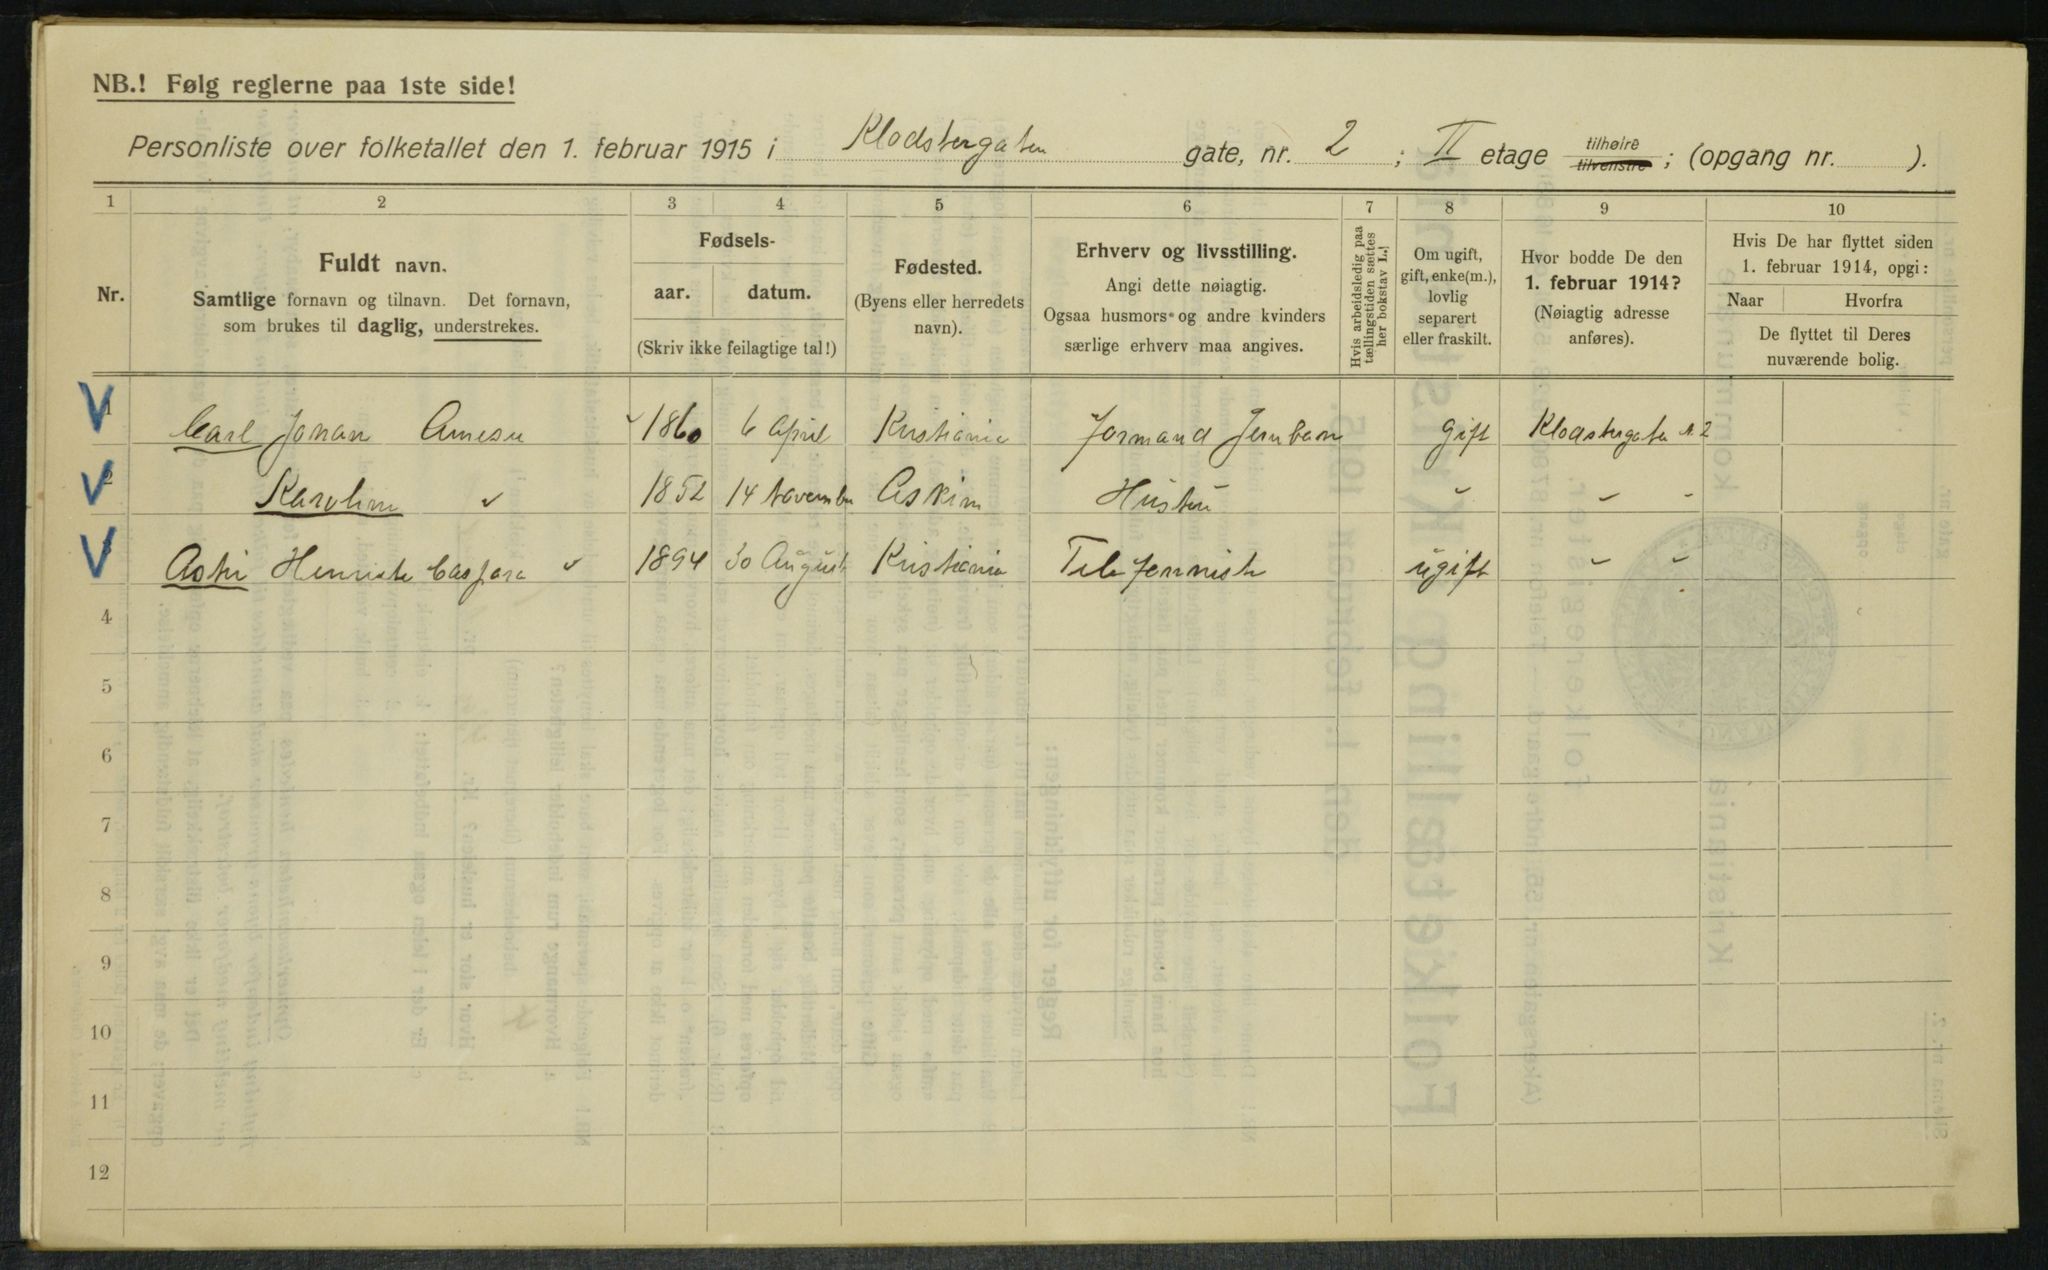 NB.! Følg reglerne paa 1ste side!
Personliste over folketallet den 1. februar 1915 i Klodstergaten gate, nr. 2 ; II etage tilhøire tilvenstre ; (opgang nr. ).
1 2 3 4 5 6 7 8 9 10
Nr.
Fuldt navn.
Samtlige fornavn og tilnavn. Det fornavn,
som brukes til daglig, understrekes.
Fødsels-
aar. datum.
(Skriv ikke feilagtige tal!)
Fødested.
(Byens eller herredets
navn).
Erhverv og livsstilling.
Angi dette nøiagtig.
Ogsaa husmors- og andre kvinders
særlige erhverv maa angives.
Hvis arbeidsledig paa
tællingstiden sættes
her bokstav L.!
Om ugift,
gift, enke(m.),
lovlig
separert
eller fraskilt.
Hvor bodde De den
1. februar 1914?
(Nøiagtig adresse
anføres).
Hvis De har flyttet siden
1. februar 1914, opgi:
Naar Hvorfra
De flyttet til Deres
nuværende bolig.
1 Carl Johan Arnesen 1860 6 April Kristiania Formand Jernbane gift Klodstergaten N. 2
2 Karoline 1852 14 November Askim Hustru
3 Henriette Caspara 1894 30 August Kristiania Telefonniste ugift
4
5
6
7
8
9
10
11
12